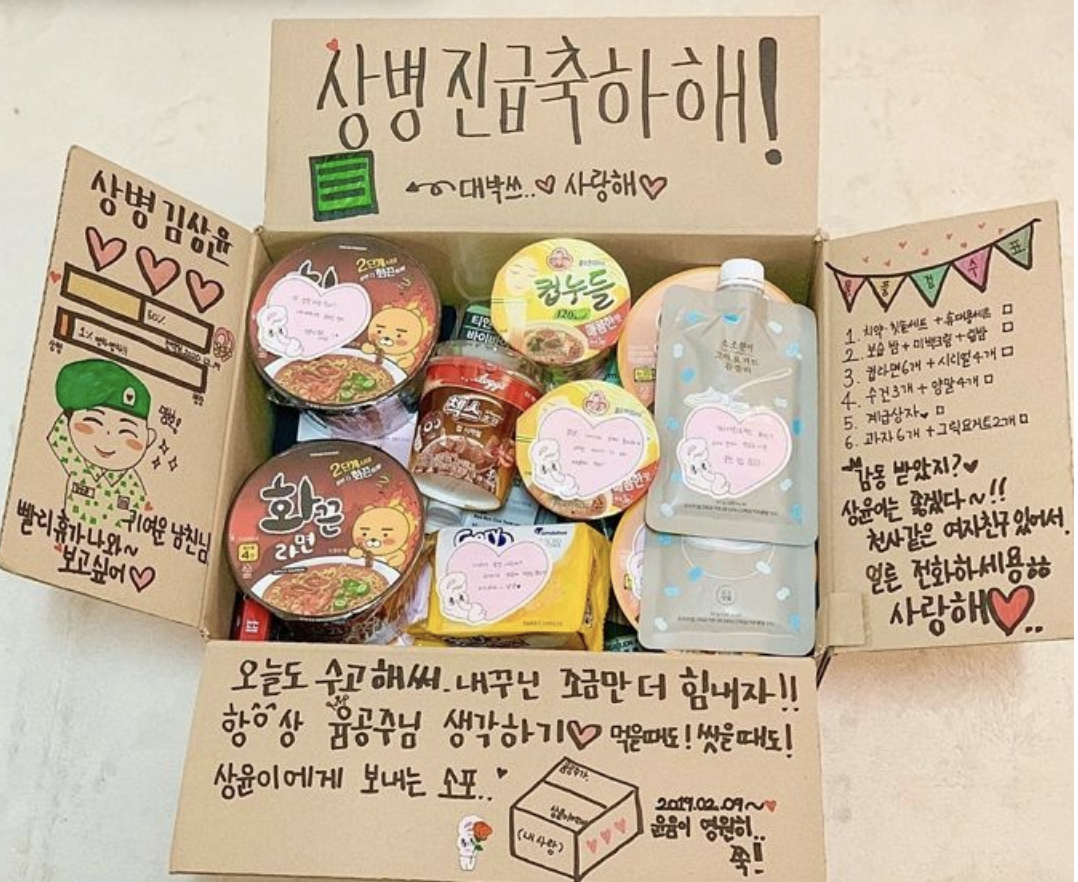 상병진급축하해!
대박쓰..♡ 사랑해♡
상병 김상윤
50%
1%
상병
빨리휴가나와~
귀여운 남친님
보고싶어♡
품검수표
1. 치약·칫솔세트 + 휴대용세트 □
2. 보습밤 + 미백크림 + 립밤 □
3. 컵라면6개 + 시리얼4개 □
4. 수건3개 + 양말4개 □
5. 계급상자♥ □
6. 과자6개 + 그릭요거트2개 □
감동 받았지?♥
상윤이는 좋겠다~!!
천사같은 여자친구 있어서.
얼른 전화하세용ㅎㅎ
사랑해♡..
2단계
화끈
라면
오뚜기
컵누들
120
매콤한맛
티안
바이
Kellogg's
첵스
초코
2단계
화끈
라면
매콤한맛
그릭요거트
오늘도 수고해써. 내꾸닌 조금만 더 힘내자!!
항상 윰공주님 생각하기♡ 먹을때도! 씻을때도!
상윤이에게 보내는 소포..♥
(내사랑)
2019.02.09~♥
윤윰이 영원히..
쭉!!